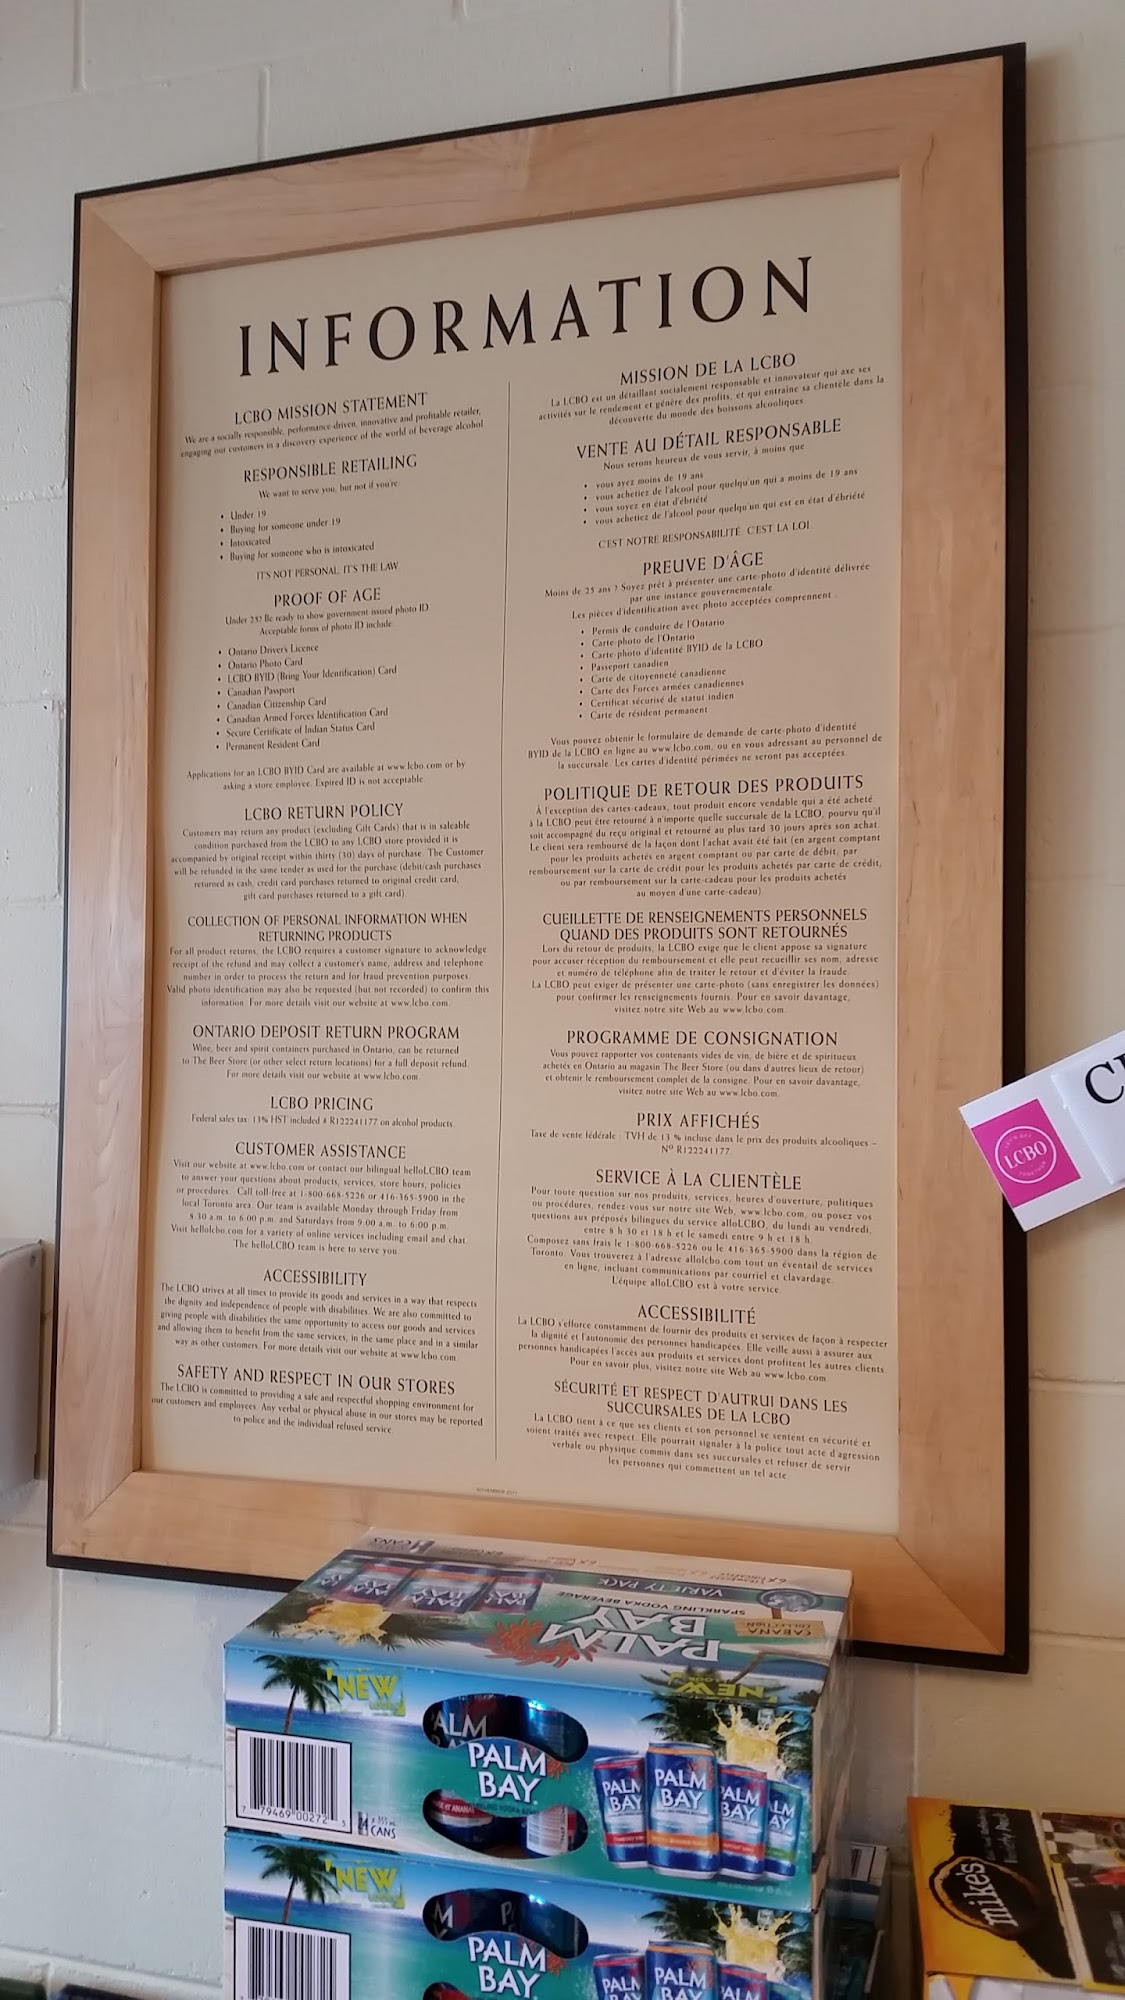 INFORMATION
LCBO MISSION STATEMENT
We are a socially responsible, performance-driven, innovative and profitable retailer,
engaging our customers in a discovery experience of the world of beverage alcohol.
RESPONSIBLE RETAILING
We want to serve you, but not if you're:
• Under 19
• Buying for someone under 19
• Intoxicated
• Buying for someone who is intoxicated
IT'S NOT PERSONAL. IT'S THE LAW.
PROOF OF AGE
Under 25? Be ready to show government issued photo ID.
Acceptable forms of photo ID include:
• Ontario Driver's Licence
• Ontario Photo Card
• LCBO BYID (Bring Your Identification) Card
• Canadian Passport
• Canadian Citizenship Card
• Canadian Armed Forces Identification Card
• Secure Certificate of Indian Status Card
• Permanent Resident Card
Applications for an LCBO BYID Card are available at www.lcbo.com or by
asking a store employee. Expired ID is not acceptable.
LCBO RETURN POLICY
Customers may return any product (excluding Gift Cards) that is in saleable
condition purchased from the LCBO to any LCBO store provided it is
accompanied by original receipt within thirty (30) days of purchase. The Customer
will be refunded in the same tender as used for the purchase (debit/cash purchases
returned as cash, credit card purchases returned to original credit card,
gift card purchases returned to a gift card).
COLLECTION OF PERSONAL INFORMATION WHEN
RETURNING PRODUCTS
For all product returns, the LCBO requires a customer signature to acknowledge
receipt of the refund and may collect a customer's name, address and telephone
number in order to process the return and for fraud prevention purposes.
Valid photo identification may also be requested (but not recorded) to confirm this
information. For more details visit our website at www.lcbo.com.
ONTARIO DEPOSIT RETURN PROGRAM
Wine, beer and spirit containers purchased in Ontario, can be returned
to The Beer Store (or other select return locations) for a full deposit refund.
For more details visit our website at www.lcbo.com.
LCBO PRICING
Federal sales tax: 13% HST included # R122241177 on alcohol products.
CUSTOMER ASSISTANCE
Visit our website at www.lcbo.com or contact our bilingual helloLCBO team
to answer your questions about products, services, store hours, policies
or procedures. Call toll-free at 1-800-668-5226 or 416-365-5900 in the
local Toronto area. Our team is available Monday through Friday from
8:30 a.m. to 6:00 p.m. and Saturdays from 9:00 a.m. to 6:00 p.m.
Visit hellolcbo.com for a variety of online services including email and chat.
The helloLCBO team is here to serve you.
ACCESSIBILITY
The LCBO strives at all times to provide its goods and services in a way that respects
the dignity and independence of people with disabilities. We are also committed to
giving people with disabilities the same opportunity to access our goods and services
and allowing them to benefit from the same services, in the same place and in a similar
way as other customers. For more details visit our website at www.lcbo.com.
SAFETY AND RESPECT IN OUR STORES
The LCBO is committed to providing a safe and respectful shopping environment for
our customers and employees. Any verbal or physical abuse in our stores may be reported
to police and the individual refused service.
MISSION DE LA LCBO
La LCBO est un détaillant socialement responsable et innovateur qui axe ses
activités sur le rendement et génère des profits, et qui entraîne sa clientèle dans la
découverte du monde des boissons alcooliques.
VENTE AU DÉTAIL RESPONSABLE
Nous serons heureux de vous servir, à moins que
• vous ayez moins de 19 ans
• vous achetiez de l'alcool pour quelqu'un qui a moins de 19 ans
• vous soyez en état d'ébriété
• vous achetiez de l'alcool pour quelqu'un qui est en état d'ébriété
C'EST NOTRE RESPONSABILITÉ. C'EST LA LOI.
PREUVE D'ÂGE
Moins de 25 ans ? Soyez prêt à présenter une carte-photo d'identité délivrée
par une instance gouvernementale.
Les pièces d'identification avec photo acceptées comprennent :
• Permis de conduire de l'Ontario
• Carte-photo de l'Ontario
• Carte-photo d'identité BYID de la LCBO
• Passeport canadien
• Carte de citoyenneté canadienne
• Carte des Forces armées canadiennes
• Certificat sécurisé de statut indien
• Carte de résident permanent
Vous pouvez obtenir le formulaire de demande de carte-photo d'identité
BYID de la LCBO en ligne au www.lcbo.com, ou en vous adressant au personnel de
la succursale. Les cartes d'identité périmées ne seront pas acceptées.
POLITIQUE DE RETOUR DES PRODUITS
À l'exception des cartes-cadeaux, tout produit encore vendable qui a été acheté
à la LCBO peut être retourné à n'importe quelle succursale de la LCBO, pourvu qu'il
soit accompagné du reçu original et retourné au plus tard 30 jours après son achat.
Le client sera remboursé de la façon dont l'achat avait été fait (en argent comptant
pour les produits achetés en argent comptant ou par carte de débit, par
remboursement sur la carte de crédit pour les produits achetés par carte de crédit,
ou par remboursement sur la carte-cadeau pour les produits achetés
au moyen d'une carte-cadeau).
CUEILLETTE DE RENSEIGNEMENTS PERSONNELS
QUAND DES PRODUITS SONT RETOURNÉS
Lors du retour de produits, la LCBO exige que le client appose sa signature
pour accuser réception du remboursement et elle peut recueillir ses nom, adresse
et numéro de téléphone afin de traiter le retour et d'éviter la fraude.
La LCBO peut exiger de présenter une carte-photo (sans enregistrer les données)
pour confirmer les renseignements fournis. Pour en savoir davantage,
visitez notre site Web au www.lcbo.com.
PROGRAMME DE CONSIGNATION
Vous pouvez rapporter vos contenants vides de vin, de bière et de spiritueux
achetés en Ontario au magasin The Beer Store (ou dans d'autres lieux de retour)
et obtenir le remboursement complet de la consigne. Pour en savoir davantage,
visitez notre site Web au www.lcbo.com.
PRIX AFFICHÉS
Taxe de vente fédérale : TVH de 13 % incluse dans le prix des produits alcooliques –
Nº R122241177.
SERVICE À LA CLIENTÈLE
Pour toute question sur nos produits, services, heures d'ouverture, politiques
ou procédures, rendez-vous sur notre site Web, www.lcbo.com, ou posez vos
questions aux préposés bilingues du service alloLCBO, du lundi au vendredi,
entre 8 h 30 et 18 h et le samedi entre 9 h et 18 h.
Composez sans frais le 1-800-668-5226 ou le 416-365-5900 dans la région de
Toronto. Vous trouverez à l'adresse allolcbo.com tout un éventail de services
en ligne, incluant communications par courriel et clavardage.
L'équipe alloLCBO est à votre service.
ACCESSIBILITÉ
La LCBO s'efforce constamment de fournir des produits et services de façon à respecter
la dignité et l'autonomie des personnes handicapées. Elle veille aussi à assurer aux
personnes handicapées l'accès aux produits et services dont profitent les autres clients.
Pour en savoir plus, visitez notre site Web au www.lcbo.com.
SÉCURITÉ ET RESPECT D'AUTRUI DANS LES
SUCCURSALES DE LA LCBO
La LCBO tient à ce que ses clients et son personnel se sentent en sécurité et
soient traités avec respect. Elle pourrait signaler à la police tout acte d'agression
verbale ou physique commis dans ses succursales et refuser de servir
les personnes qui commettent un tel acte.
NOVEMBER 2011
LCBO
CABANA
VARIETY PACK
SPARKLING VODKA BEVERAGE
PALM
BAY
NEW
PALM
BAY
PALM BAY
PALM BAY
PALM BAY
7 79469 00272 5
CANS
NEW
PALM
BAY
PALM
PALM
BAY
mike's